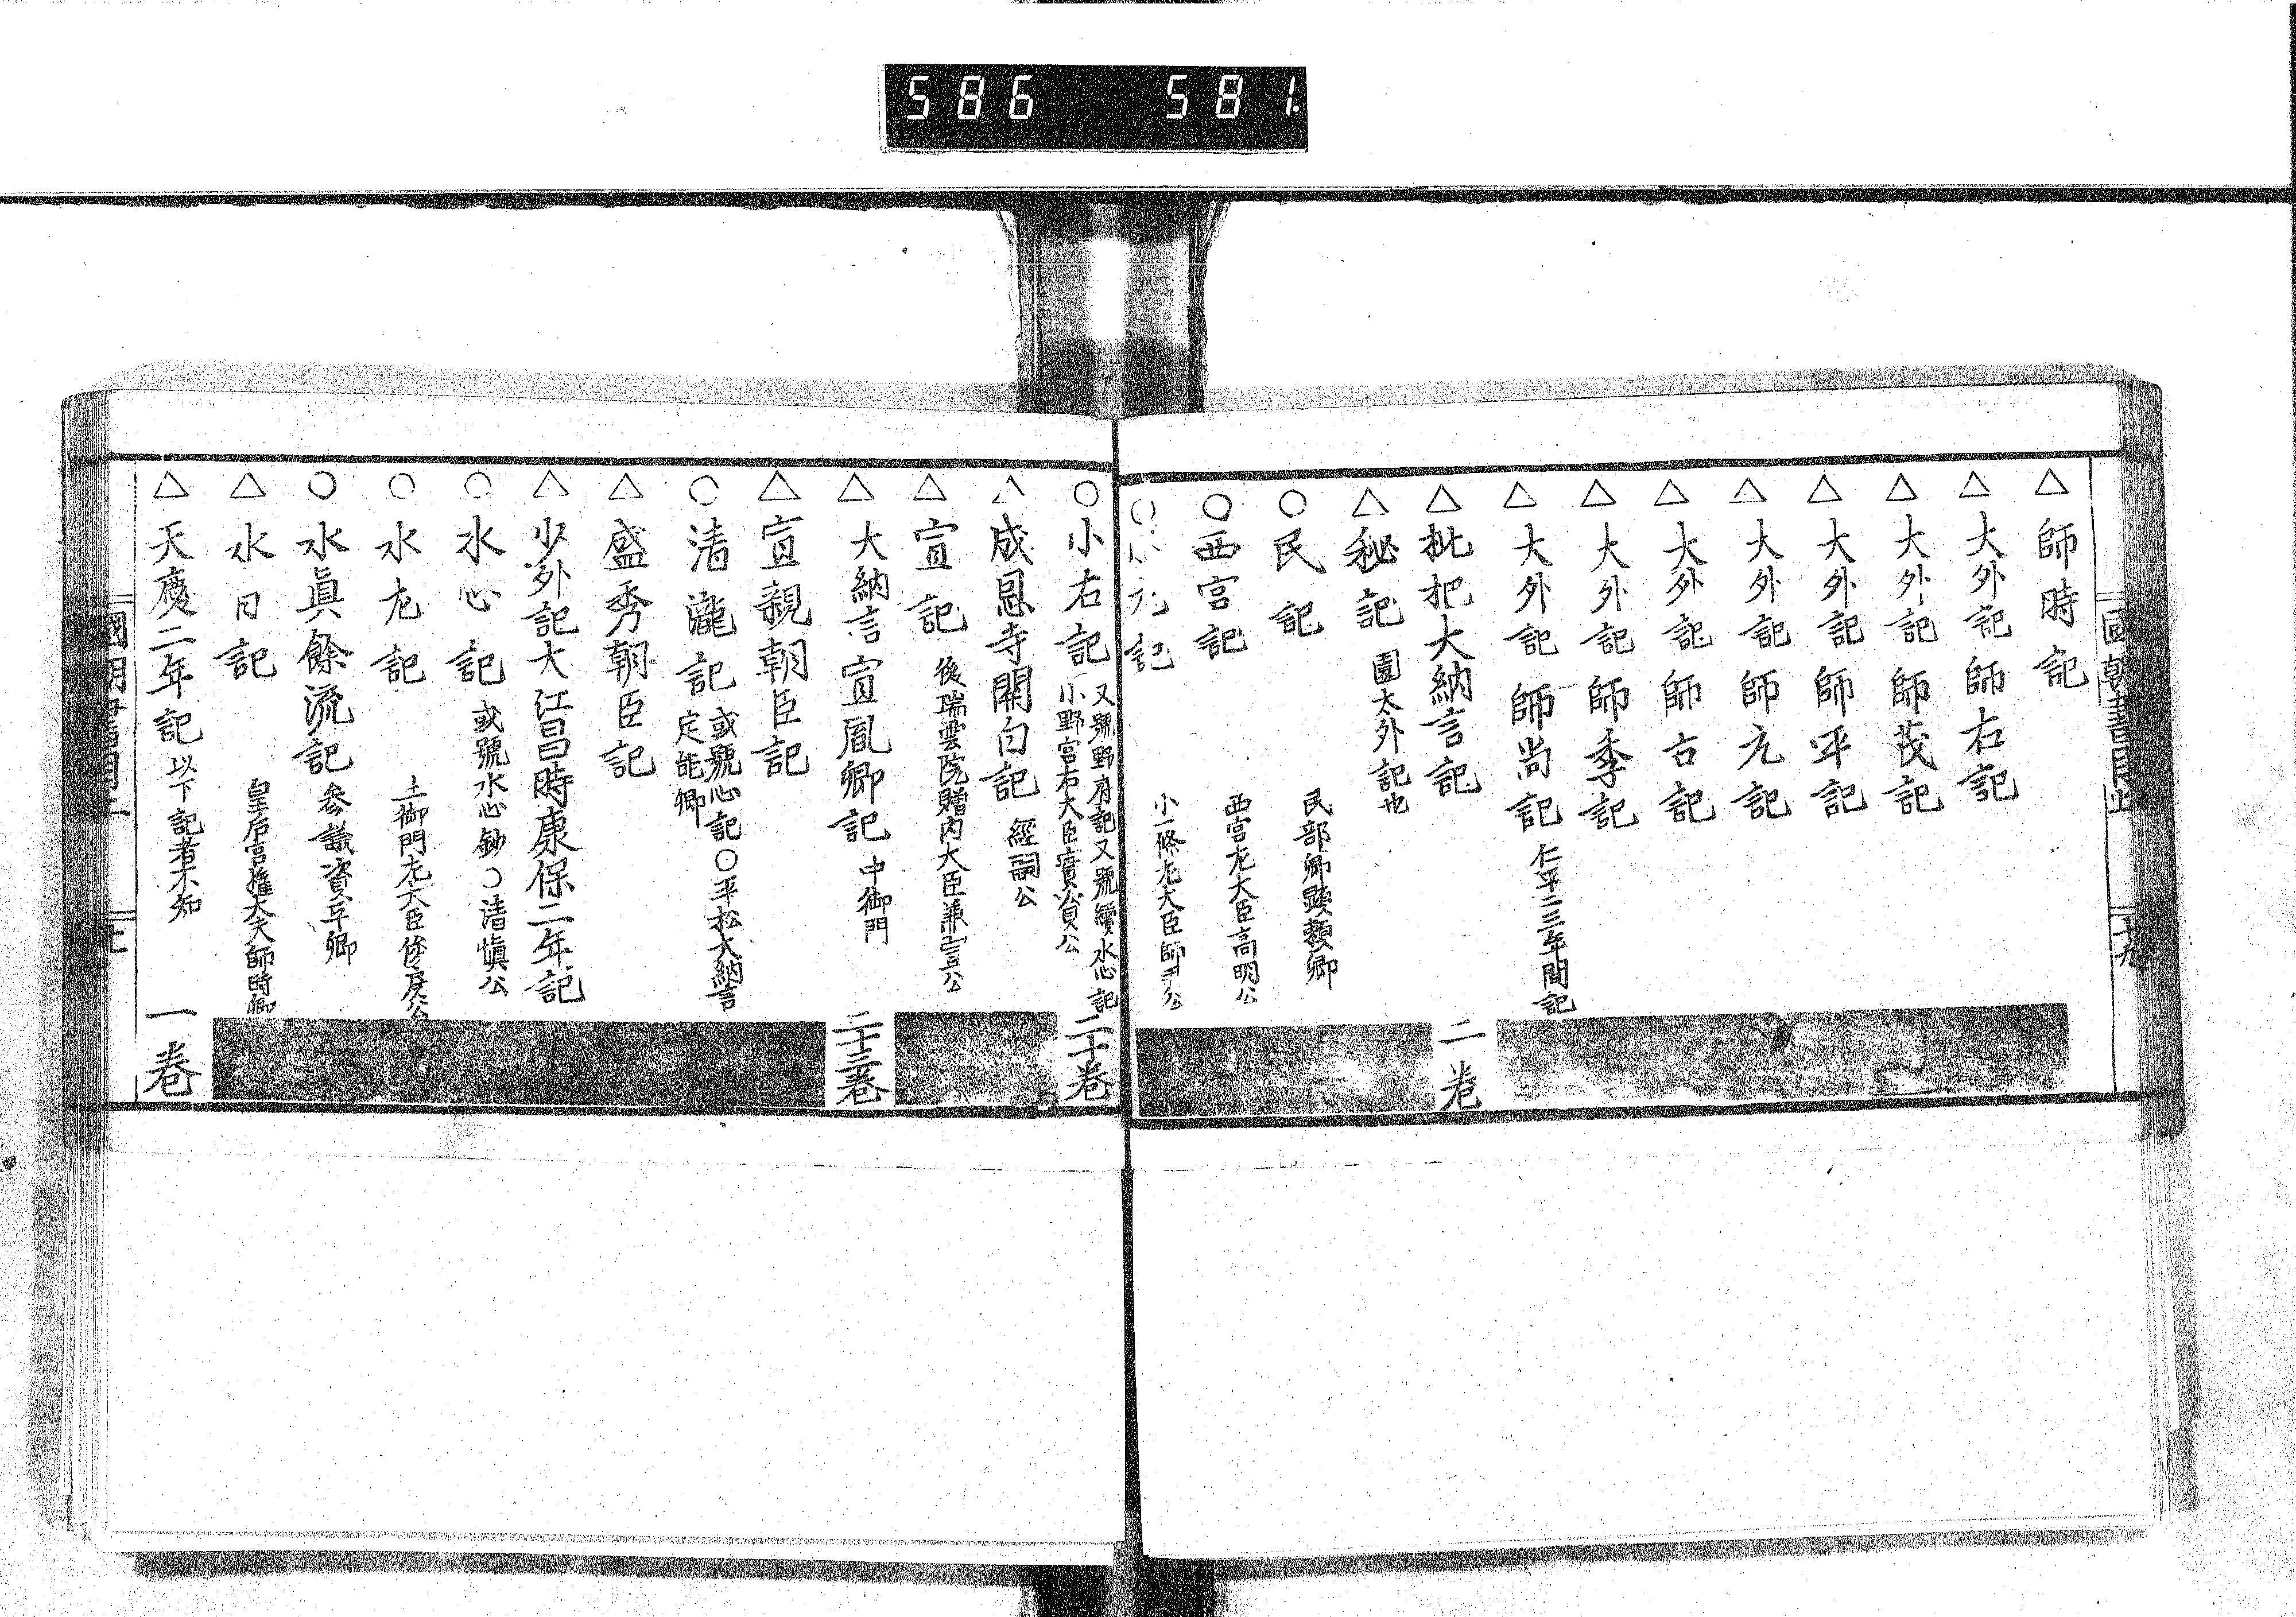 586 581
國朝書目 十九
△師時記
△大外記師右記
△大外記師茂記
△大外記師平記
△大外記師元記
△大外記師古記
△大外記師季記
△大外記師尚記 仁平二三年間記
△枇杷大納言記 二卷
△秘記 園太外記也
○民記 民部卿顯頼卿
○西宮記 西宮左大臣高明公
記 小一條左大臣師尹公
○小右記 又號野府記又號續水心記
小野宮右大臣實資公 二十卷
成恩寺關白記 經嗣公
△宣記 後瑞雲院贈内大臣兼宣公
△大納言宣胤卿記 中御門 二十三卷
△宣親朝臣記
○清瀧記 或號心記○平松大納言
定能卿
△盛秀朝臣記
△少外記大江昌時康保二年記
○水心記 或號水心鈔○清愼公
○水左記 土御門左大臣俊房公
○水眞餘流記 參議資平卿
△水日記 皇后宮權大夫師時卿
△天慶二年記 以下記者不知 一卷